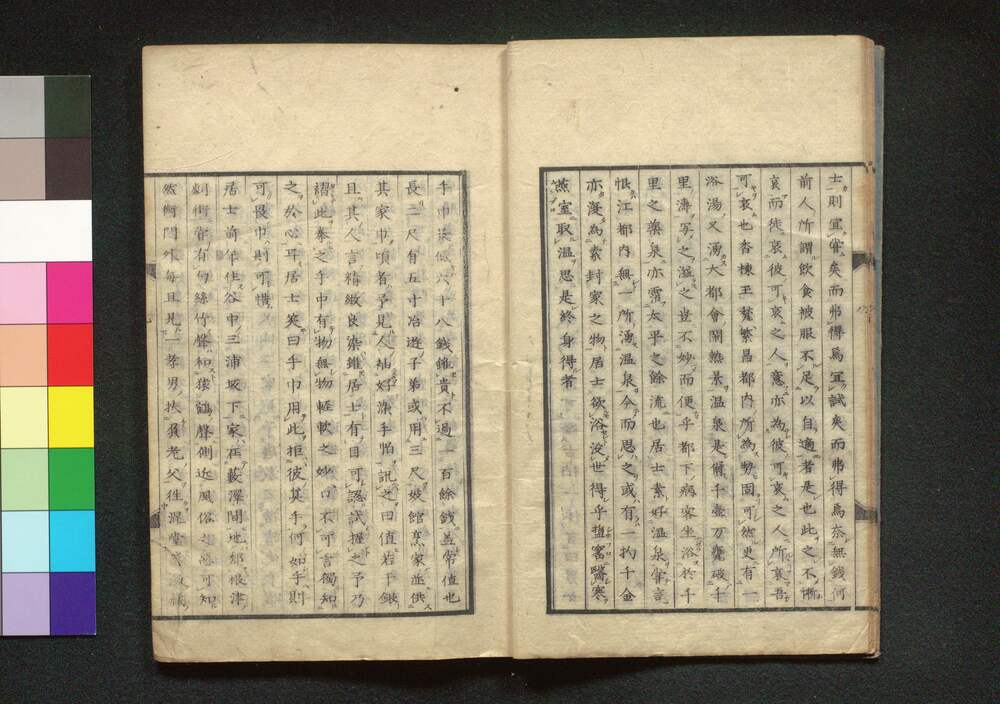 士則宜嘗矣而弗得爲宜試矣而弗得爲奈無錢何
前人所謂飲食被服不足以自適者是也此之不慚
哀而徒哀彼可哀之人意亦為彼可哀之人所哀吾
可哀也杳棟王甍繁昌都内所為勢固可然更有一
浴湯又湧大都會閙熱景温泉是爾千壺万甕破千
里濤写之溢之豈不妙而便乎都下病客坐浴於千
里之藥泉亦霑太平之餘流也居士素好温泉常言
恨江都内無一所湧温泉今而思之或有一杓千金
亦漫為素封家之物居士欲浴没世得乎塩窖醫寒
燕室取温思是終身得者
手巾染価六十八錢雖貴不過一百餘錢蓋常値也
長二尺有五寸冶遊子弟或用三尺妓館烹家並供
其家巾頃者予見人袖好染手怕訊之曰値若干鍰
且其人言精緻良染雖居士有目可認試握之予乃
謂此拳之手中有物無物輕軟之妙口不可言獨知
之於心耳居士笑曰手巾用此拒彼其手何如手則
可畏巾則可惜
居士前年住谷中三浦坂下家在藪澤間地郷根津
劇術嘗有句絲竹聲和猿鶴聲側近風俗之惡可知
然衡門外每旦見一孝男扶負老父往